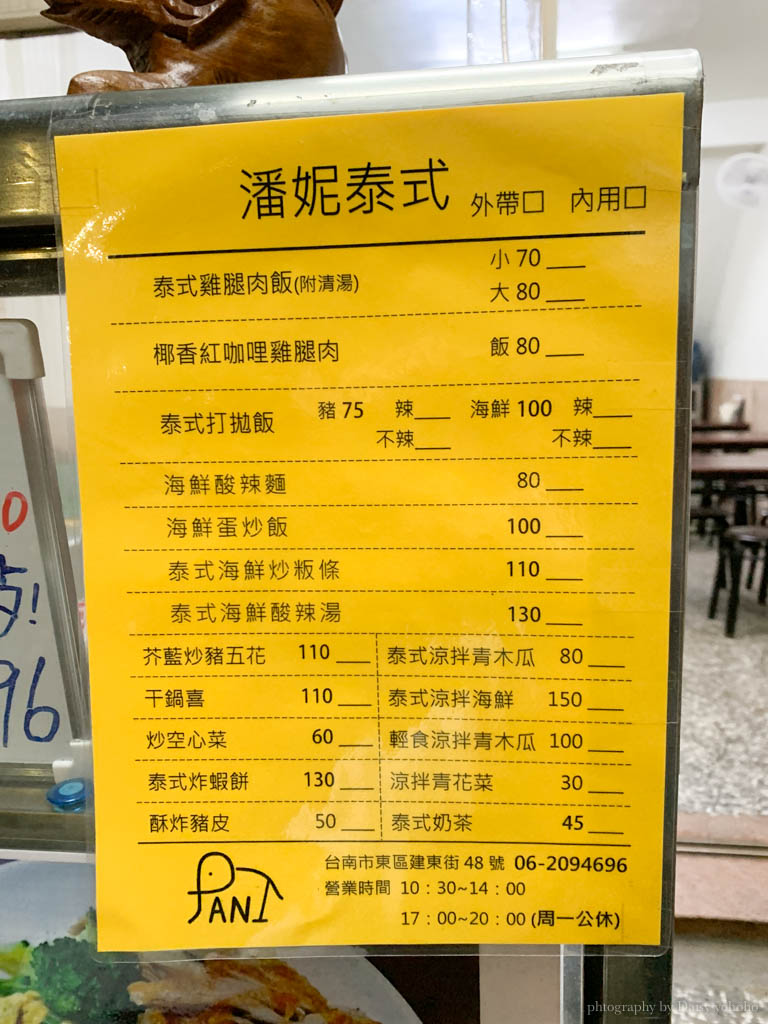 潘妮泰式 外帶□ 內用□
泰式雞腿肉飯(附清湯) 小 70 ___
大 80 ___
椰香紅咖哩雞腿肉 飯 80 ___
泰式打拋飯 豬 75 辣___ 海鮮 100 辣___
不辣___ 不辣___
海鮮酸辣麵 80 ___
海鮮蛋炒飯 100 ___
泰式海鮮炒粄條 110 ___
泰式海鮮酸辣湯 130 ___
芥藍炒豬五花 110 ___ 泰式涼拌青木瓜 80 ___
干鍋喜 110 ___ 泰式涼拌海鮮 150 ___
炒空心菜 60 ___ 輕食涼拌青木瓜 100 ___
泰式炸蝦餅 130 ___ 涼拌青花菜 30 ___
酥炸豬皮 50 ___ 泰式奶茶 45 ___
PANI
台南市東區建東街 48 號 06-2094696
營業時間 10：30~14：00
17：00~20：00 (周一公休)
0
!
96
phtography by Daisy yohoho